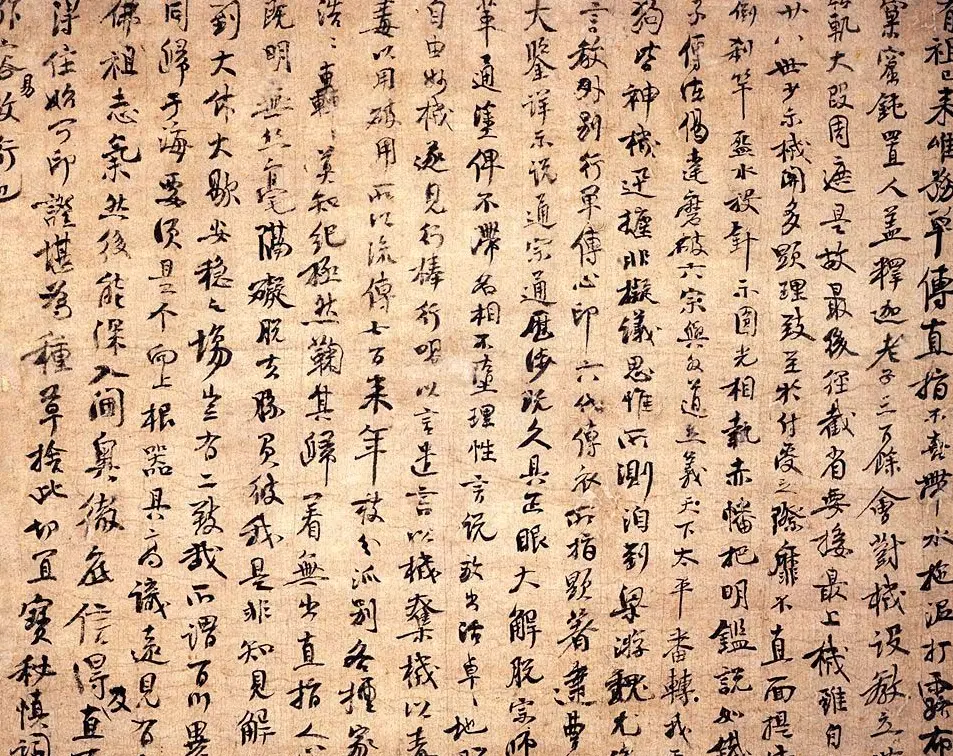 有祖已来唯務單傳直指不喜帶水拖泥打露布
窠窟鈍置人蓋釋迦老子三百餘會對機設教立
軌大段周遮是故最後徑截省要接最上機雖自
廿八世少示機關多顯理致至於付受之際靡不直面提
倒刹竿盋水投針示圓光相執赤幡把明鑑說如鐵
子傳法偈達磨破六宗與外道立義天下太平番轉我
狗皆神機迅捷非擬議思惟所測洎到梁游魏尤
言教外別行單傳心印六代傳衣所指顯著逮曹
大鑒詳示說通宗通歷涉既久具正眼大解脫宗師
革通塗俾不滯名相不墮理性言說放出活卓〻地
自由妙機遂見行棒行喝以言遣言以機奪機以毒
毒以用破用所以流傳七百来年枝分派別各擅家
浩〻轟〻莫知紀極然鞠其歸著無出直指人
既明無絲毫隔礙脫去勝負彼我是非知見解
到大休大歇安穩之場豈有二致哉所謂百川異
同歸于海要須是个向上根器具高識遠見有
佛祖志氣然後能深入閫奧徹底信得及直
得住始可印證堪為種草捨此切宜寶秘慎詞
容易放行也